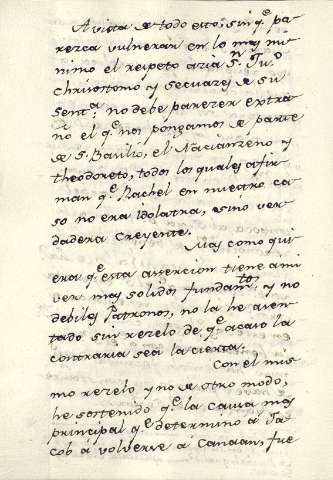 A vista de todo esto; sin q.e pa-
rezca vulnerar en lo mas mi-
nimo el respeto acia S.n Ju.o
Chrisostomo y secuaces de su
sent.a; no debe parecer extra-
ño el q.e nos pongamos de parte
de S. Basilio, el Nacianzeno y
theodoreto, todos los quales afir-
man q.e Rachel en nuestro ca-
so no era idolatra, sino ver-
dadera creyente.
Mas como qui-
era q.e esta assercion tiene a mi
ver mas solidos fundam.tos y no
debiles Patronos, no la he asen-
tado sin rezelo de q.e acaso la
contraria sea la cierta.
Con el mis-
mo rezelo y no de otro modo,
he sostenido q.e la causa mas
principal q.e determinò a Ja-
cob á volverse à Canaan, fue